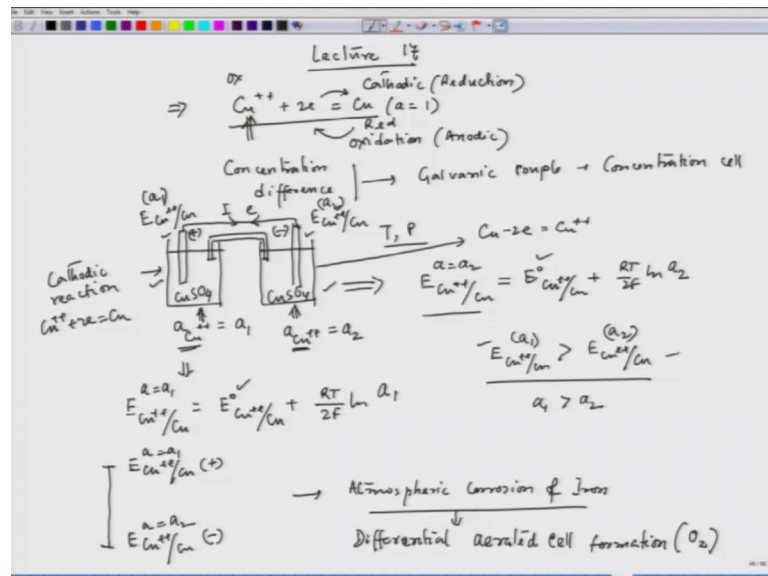 Edit View Insert Actions Tools Help
Lecture 17
ox
⇒ Cu++ + 2e = Cu (a = 1)
Cathodic (Reduction)
Red
oxidation (Anodic)
Concentration difference → Galvanic couple → Concentration cell
(a1)
E Cu++/Cu
I e
(a2)
E Cu++/Cu
(+) (-)
T, P
Cu - 2e = Cu++
Cathodic reaction
Cu++ + 2e = Cu
CuSO4 CuSO4
a Cu++ = a1 a Cu++ = a2
⇒ E a=a2 Cu++/Cu = E° Cu++/Cu + RT/2F ln a2
E (a1) Cu++/Cu > E (a2) Cu++/Cu
a1 > a2
⇓
E a=a1 Cu++/Cu = E° Cu++/Cu + RT/2F ln a1
E a=a1 Cu++/Cu (+)
E a=a2 Cu++/Cu (-)
→ Atmospheric corrosion of Iron
↓
Differential aerated cell formation (O2)